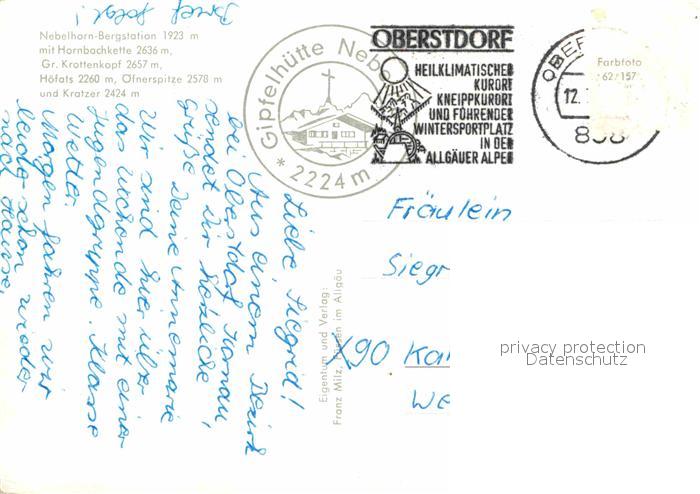 Nebelhorn-Bergstation 1923 m
mit Hornbachkette 2636 m,
Gr. Krottenkopf 2657 m,
Höfats 2260 m, Öfnerspitze 2578 m
und Kratzer 2424 m
Gipfelhütte Nebel
* 2224 m
OBERSTDORF
HEILKLIMATISCHER
KURORT
KNEIPPKURORT
UND FÜHRENDER
WINTERSPORTPLATZ
IN DEN
ALLGÄUER ALPEN
OBER
12.
898
Farbfoto
62/157
Liebe Siegrid!
Aus einem Bezirk
bei Oberstdorf,
sendet Dir herzliche
Grüße Deine Annemarie
Wir sind hier über
das Wochende mit einer
Jugendgruppe. Klasse
Wetter.
Morgen fahren wir
leider schon wieder
nach Hause.
Brief folgt!
Eigentum und Verlag:
Franz Milz, Füssen im Allgäu
Fräulein
Siegr
X90 Kai
We
privacy protection
Datenschutz